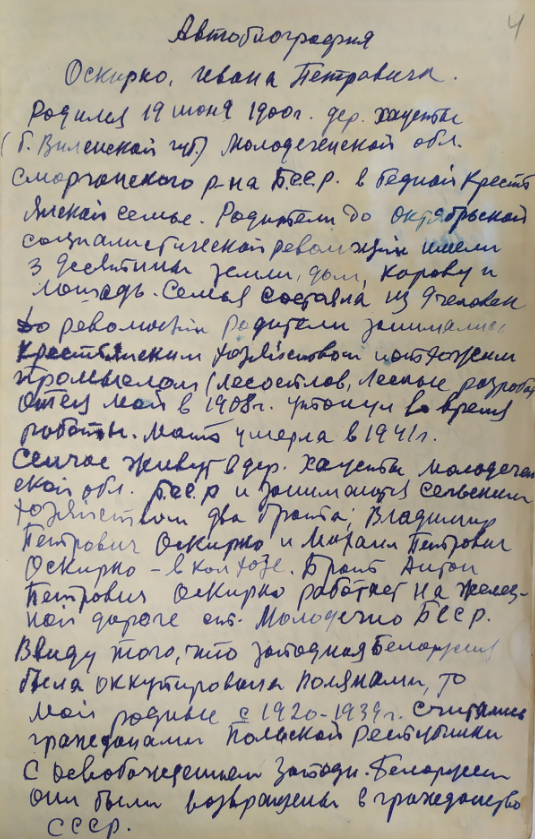 4
Автобиография
Оскирко, Ивана Петровича.
Родился 19 июня 1900г. дер. Хацуты
(б. Виленской губ.) Молодеченской обл.
Сморгонского р-на БССР. в бедной крестъ
янской семье. Родители до октябрьской
социалистической революции имели
3 десятины земли, дом, корову и
лошадь. Семья состояла из 9 человек
До революции родители занимались
крестьянским хозяйством и отхожим
промыслом (лесосплав, лесные разработ
Отец мой в 1908г. утонул во время
работы. Мать умерла в 1941г.
Сейчас живут в дер. Хацуты Молодечен
ской обл. БССР и занимаются сельским
хозяйством два брата; Владимир
Петрович Оскирко и Михаил Петрович
Оскирко – в колхозе. Брат Антон
Петрович Оскирко работает на желез-
ной дороге ст. Молодечно БССР.
Ввиду того, что западная Белоруссия
была оккупирована поляками, то
мои родные с 1920-1939г. считались
гражданами Польской Республики
С освобождением Западн. Белоруссии
они были возвращены в гражданство
СССР.